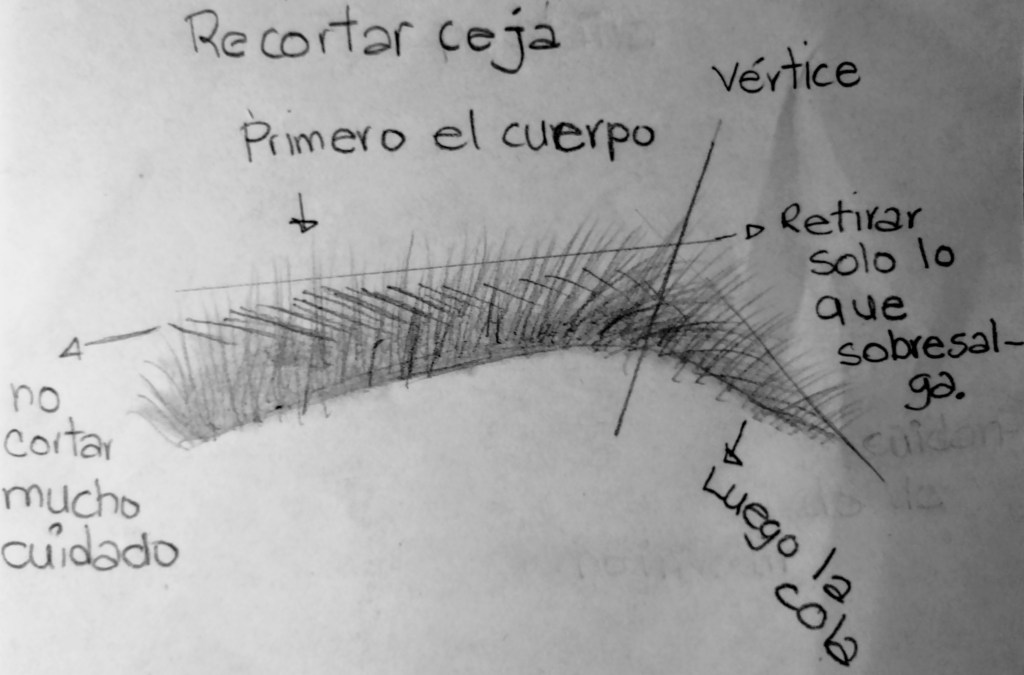 Recortar ceja
vértice
Primero el cuerpo
Retirar
solo lo
que
sobresal-
ga.
no
cortar
mucho
cuidado
Luego la
cola